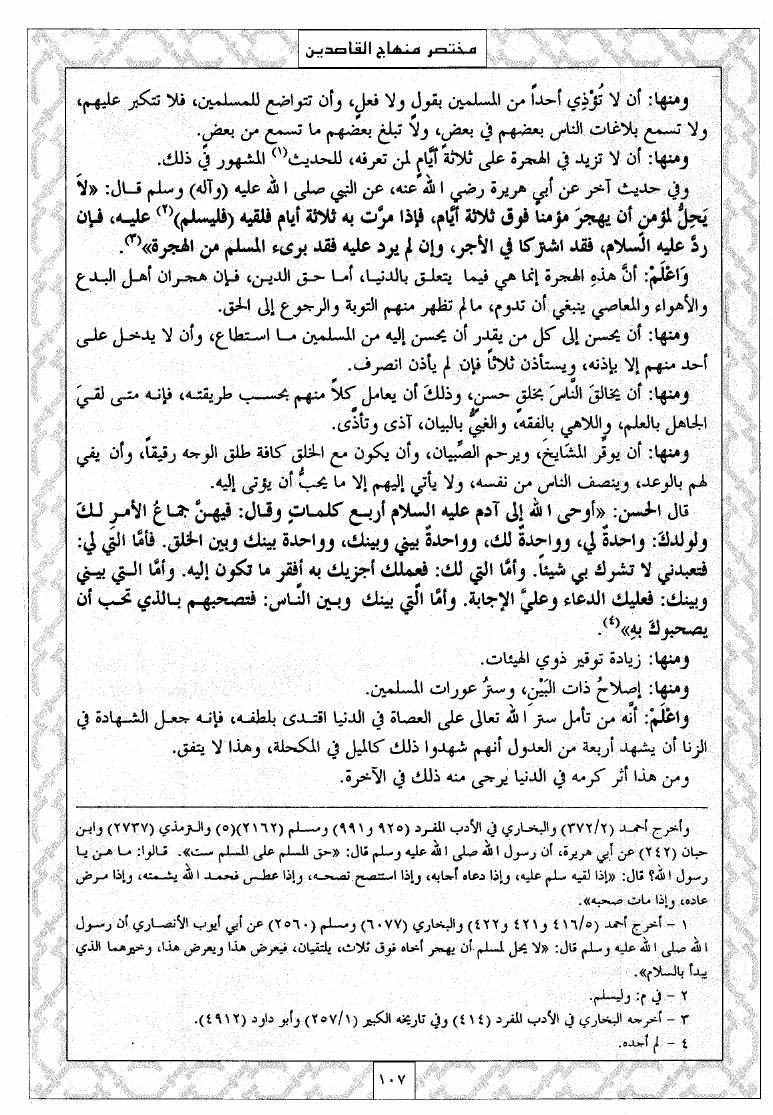 مختصر منهاج القاصدين
ومنها: أن لا تُؤْذِي أحداً من المسلمين بقول ولا فعلٍ، وأن تتواضع للمسلمين، فلا تتكبر عليهم،
ولا تسمع بلاغات الناس بعضهم في بعض، ولا تبلغ بعضهم ما تسمع من بعضٍ.
ومنها: أن لا تزيد في الهجرة على ثلاثة أيَّامٍ لمن تعرفه، للحديث(١) المشهور في ذلك.
وفي حديث آخر عن أبي هريرة رضي الله عنه، عن النبي صلى الله عليه (وآله) وسلم قال: «لاَ
يَحِلُّ لمؤمنٍ أن يهجرَ مؤمناً فوق ثلاثة أيَّام، فإذا مرَّت به ثلاثة أيام فلقيه (فليسلم)(٢) عليه، فإن
ردَّ عليه السلام، فقد اشتركا في الأجر، وإن لم يرد عليه فقد برىء المسلم من الهجرة»(٣).
وَاعْلَمْ: أنَّ هذهِ الهجرة إنما هي فيما يتعلق بالدنيا، أما حق الدين، فإن هجران أهل البدع
والأهواء والمعاصي ينبغي أن تدوم، مالم تظهر منهم التوبة والرجوع إلى الحق.
ومنها: أن يحسن إلى كل من يقدر أن يحسن إليه من المسلمين ما استطاع، وأن لا يدخل على
أحد منهم إلا بإذنه، ويستأذن ثلاثاً فإن لم يأذن انصرف.
ومنها: أن يخالقَ النَّاسَ بخلقٍ حسنٍ، وذلكَ أن يعامل كلاً منهم بحسب طريقته، فإنه متى لقيَ
الجاهل بالعلم، واللاهي بالفقه، والغبيُّ بالبيان، آذى وتأذَّى.
ومنها: أن يوقّر المشايخَ، ويرحم الصِّبيان، وأن يكون مع الخلق كافة طلق الوجه رقيقاً، وأن يفي
لهم بالوعد، وينصف الناس من نفسه، ولا يأتي إليهم إلا ما يحبُّ أن يؤتى إليه.
قال الحسن: «أوحى الله إلى آدم عليه السلام أربع كلماتٍ وقال: فيهنَّ جماعُ الأمرِ لكَ
ولولدكَ: واحدةٌ لي، وواحدةٌ لك، وواحدةٌ بيني وبينك، وواحدة بينك وبين الخلق. فأمَّا التي لي:
فتعبدني لا تشرك بي شيئاً. وأمَّا التي لك: فعملك أجزيك به أفقر ما تكون إليه. وأمَّا التي بيني
وبينك: فعليك الدعاء وعليَّ الإجابة. وأمَّا الَّتي بينك وبين النَّاس: فتصحبهم بالذي تحب أن
يصحبوكَ بهِ»(٤).
ومنها: زيادة توقير ذوي الهيئات.
ومنها: إصلاحُ ذات البَيْنِ، وسترُ عورات المسلمين.
واعْلَمْ: أنَّه من تأمل ستر الله تعالى على العصاة في الدنيا اقتدى بلطفه، فإنه جعل الشهادة في
الزنا أن يشهد أربعة من العدول أنهم شهدوا ذلك كالميل في المكحلة، وهذا لا يتفق.
ومن هذا أثر كرمه في الدنيا يرجى منه ذلك في الآخرة.
وأخرج أحمد (٣٧٢/٢) والبخاري في الأدب المفرد (٩٢٥ و٩٩١) ومسلم (٢١٦٢)(٥) والترمذي (٢٧٣٧) وابن
حبان (٢٤٢) عن أبي هريرة، أن رسول الله صلى الله عليه وسلم قال: «حق المسلم على المسلم ست». قالوا: ما هن يا
رسول الله؟ قال: «إذا لقيه سلم عليه، وإذا دعاه أجابه، وإذا استنصح نصحه، وإذا عطس فحمد الله يشمته، وإذا مرض
عاده، وإذا مات صحبه».
١ - أخرج أحمد (٤١٦/٥ و٤٢١ و٤٢٢) والبخاري (٦٠٧٧) ومسلم (٢٥٦٠) عن أبي أيوب الأنصاري أن رسول
الله صلى الله عليه وسلم قال: «لا يحل لمسلم أن يهجر أخاه فوق ثلاث، يلتقيان، فيعرض هذا ويعرض هذا، وخيرهما الذي
يبدأ بالسلام».
٢ - في م: وليسلم.
٣ - أخرجه البخاري في الأدب المفرد (٤١٤) وفي تاريخه الكبير (٢٥٧/١) وأبو داود (٤٩١٢).
٤ - لم أجده.
١٠٧